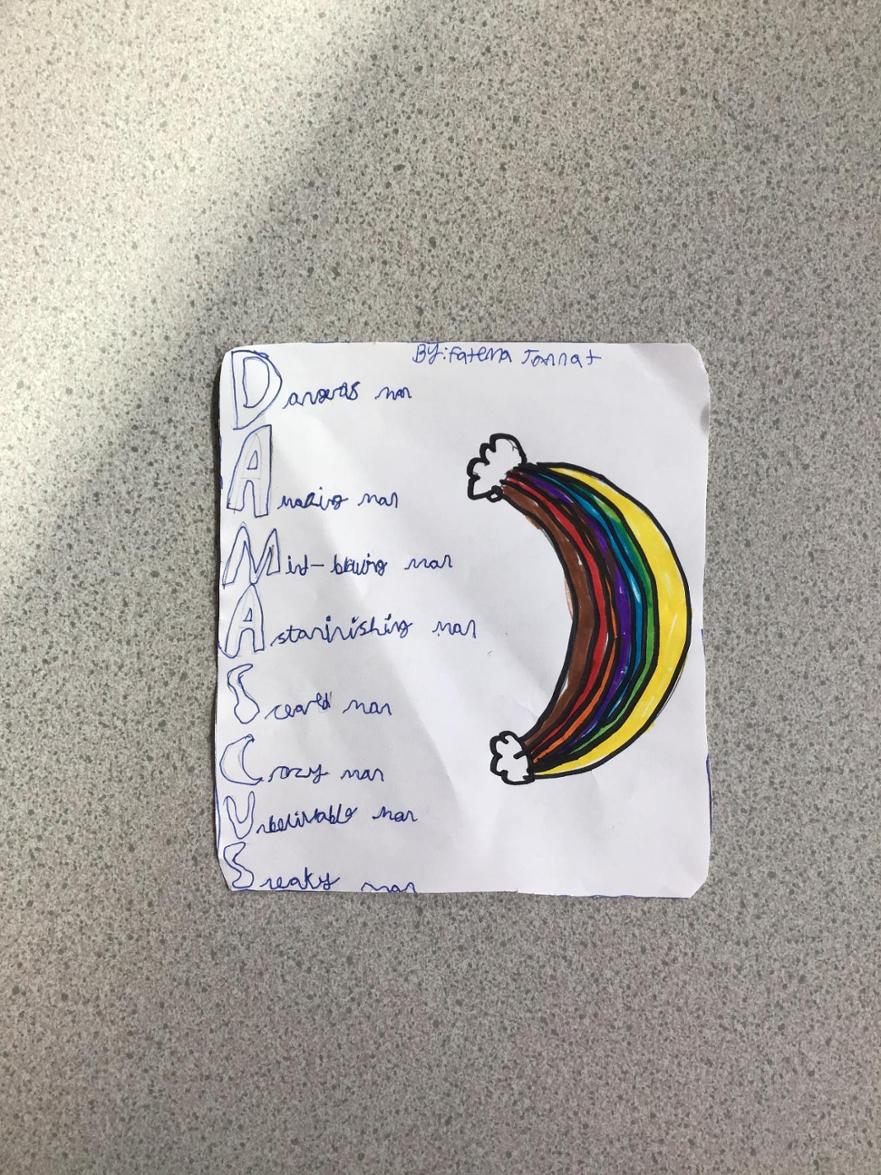 By: Fatema Jannat
Dangeras man
Amazing man
Mind-blowing man
Astarinishing man
Sceared man
Crazy man
Unbelivable man
Sneaky man